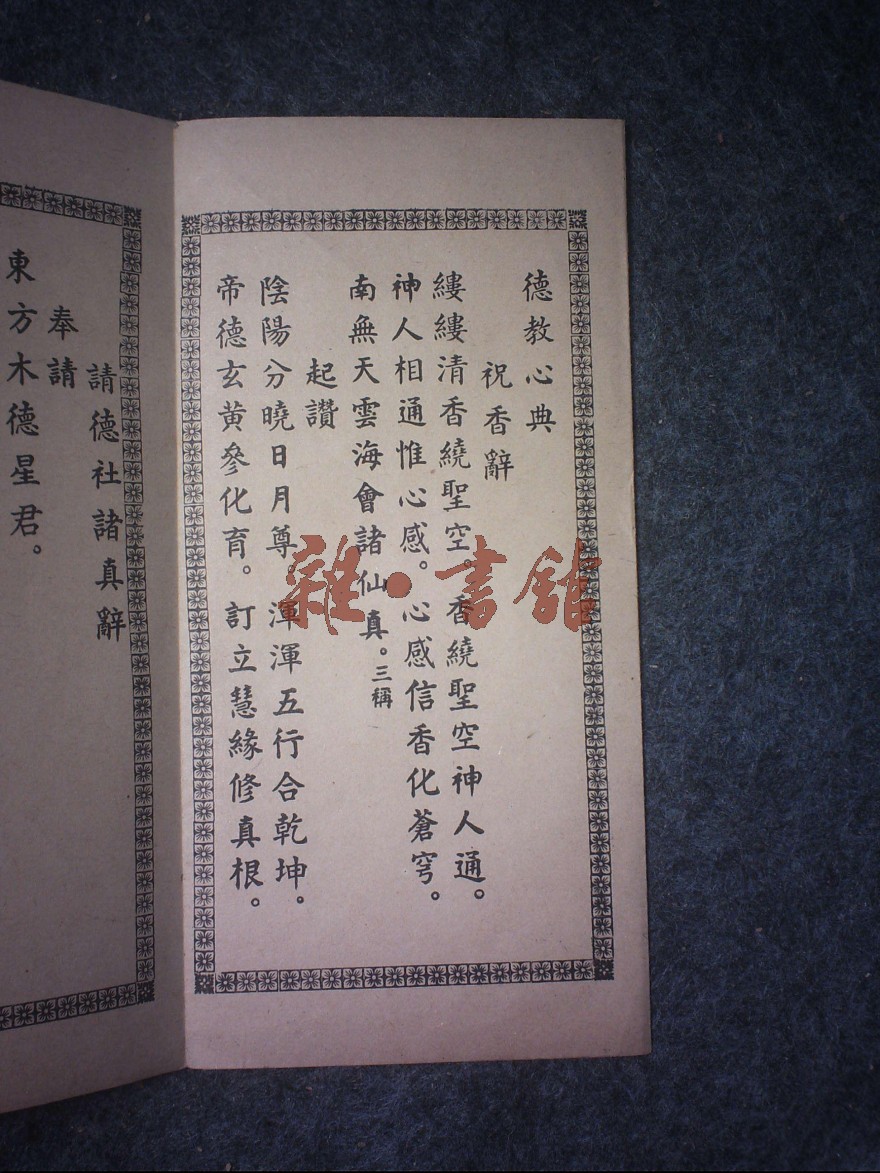 德教心典
祝香辭
縷縷清香繞聖空。香繞聖空神人通。
神人相通惟心感。心感信香化蒼穹。
南無天雲海會諸仙真。三稱
起讚
陰陽分曉日月尊。渾渾五行合乾坤。
帝德玄黃參化育。訂立慧緣修真根。
請德社諸真辭
奉請
東方木德星君。
雜·書館